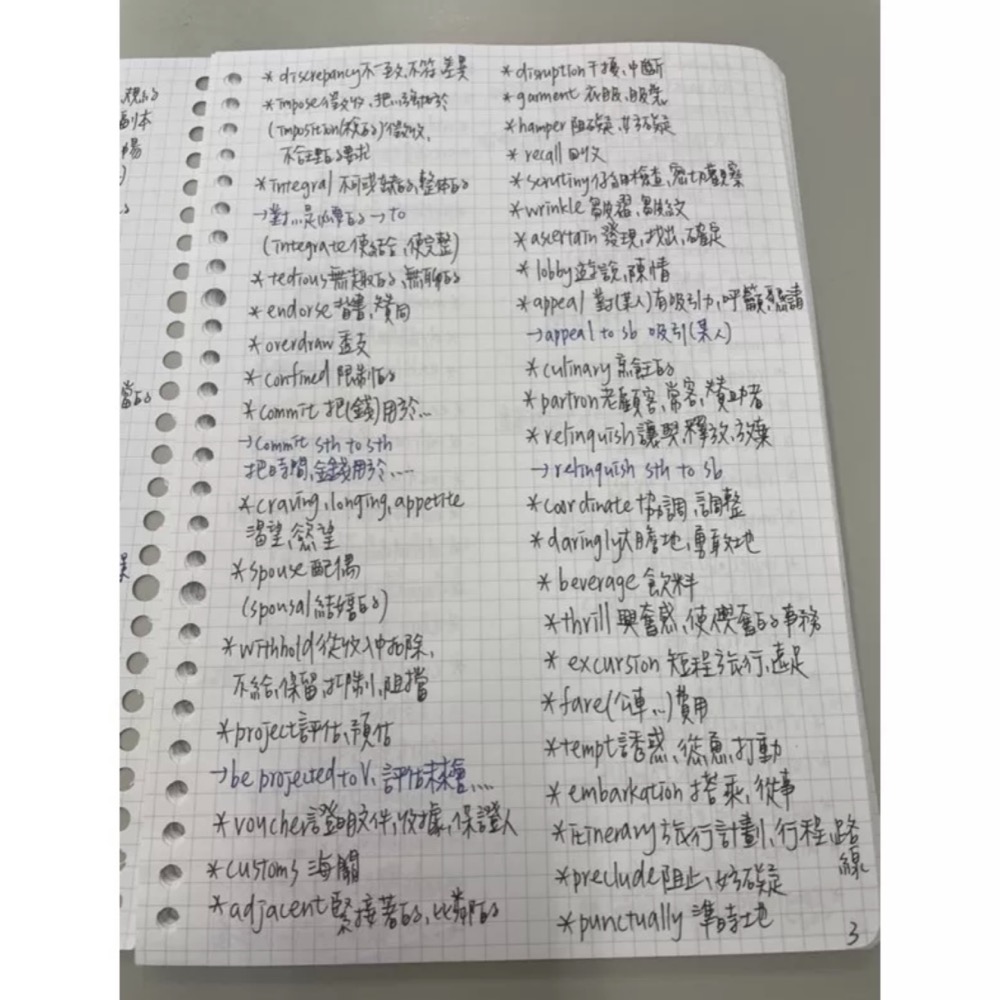 *discrepancy 不一致、不符、差異
*impose 徵收、把…強加於
(imposition(稅的)徵收、
不合理的要求
*integral 不可或缺的、整體的
→對…是必須的→to
(integrate 使結合、使完整)
*tedious 無趣的、無聊的
*endorse 背書、贊同
*overdraw 透支
*confined 限制的
*commit 把(錢)用於…
→commit sth to sth
把時間、金錢用於……
*craving、longing、appetite
渴望、慾望
*spouse 配偶
(spousal 結婚的)
*withhold 從收入中扣除、
不給、保留、抑制、阻擋
*project 評估、預估
→be projected to V. 評估未來會……
*voucher 證明文件、收據、保證人
*customs 海關
*adjacent 緊接著的、比鄰的
*disruption 干擾、中斷
*garment 衣服、服裝
*hamper 阻礙、妨礙
*recall 回收
*scrutiny 仔細檢查、密切觀察
*wrinkle 皺褶、皺紋
*ascertain 發現、找出、確定
*lobby 遊說、陳情
*appeal 對(某人)有吸引力、呼籲、懇請
→appeal to sb 吸引(某人)
*culinary 烹飪的
*partron 老顧客、常客、贊助者
*relinquish 讓與、釋放、放棄
→relinquish sth to sb
*coordinate 協調、調整
*daringly 大膽地、勇敢地
*beverage 飲料
*thrill 興奮感、使興奮的事務
*excursion 短程旅行、遠足
*fare(公車…)費用
*tempt 誘惑、慫恿、打動
*embarkation 搭乘、從事
*itinerary 旅行計劃、行程、路
線
*preclude 阻止、妨礙
*punctually 準時地
3